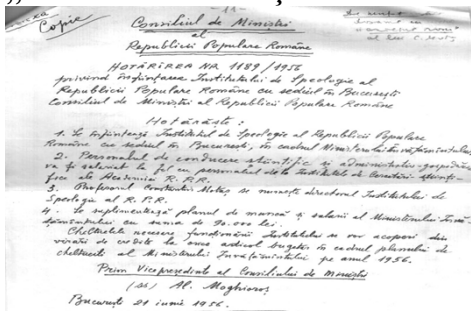 - 11 -
Copie
Consiliul de Miniștri
al
Republicii Populare Române
HOTĂRÎREA NR. 1189/1956
privind înființarea Institutului de Speologie al
Republicii Populare Române cu sediul în București
Consiliul de Miniștri al Republicii Populare Române
Hotărăște:
1. Se înființează Institutul de Speologie al Republicii Populare
Române cu sediul în București, în cadrul Ministerului Învățămîntului.
2. Personalul de conducere științific și administrativ-gospodăresc
va fi salarizat la fel cu personalul de la Institutele de Cercetări științi-
fice ale Academiei R.P.R.
3. Profesorul Constantin Motaș se numește directorul Institutului de
Speologie al R.P.R.
4. Se suplimentează planul de muncă și salarii al Ministerului Învă-
țămîntului cu suma de lei.
Cheltuielile necesare funcționării Institutului se vor acoperi din
virări de credite la orice articol bugetar în cadrul planului de
cheltuieli al Ministerului Învățămîntului pe anul 1956.
Prim Vicepreședinte al Consiliului de Miniștri
(ss) Al. Moghioroș
București 21 iunie 1956.